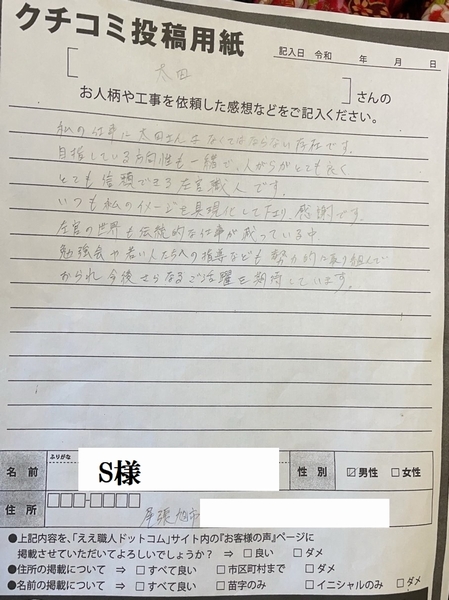 クチコミ投稿用紙
記入日 令和 年 月 日
[ 太田 ] さんの
お人柄や工事を依頼した感想などをご記入ください。
私の仕事に太田さんはなくてはならない存在です。
目指している方向性も一緒で、人がらがとても良く
とても信頼できる左官職人です。
いつも私のイメージを具現化して下さり、感謝です。
左官の世界も伝統的な仕事が減っている中
勉強会や若い人たちへの指導なども努力的に取り組んで
おられ今後さらなるご活躍を期待しています。
ふりがな
名前 S様 性別 ☑男性 □女性
住所 □□□-□□□□
尾張旭市
●上記内容を、「ええ職人ドットコム」サイト内の『お客様の声』ページに
掲載させていただいてよろしいでしょうか? ⇒ □良い □ダメ
●住所の掲載について ⇒ □すべて良い □市区町村まで □ダメ
●名前の掲載について ⇒ □すべて良い □苗字のみ □イニシャルのみ □ダメ